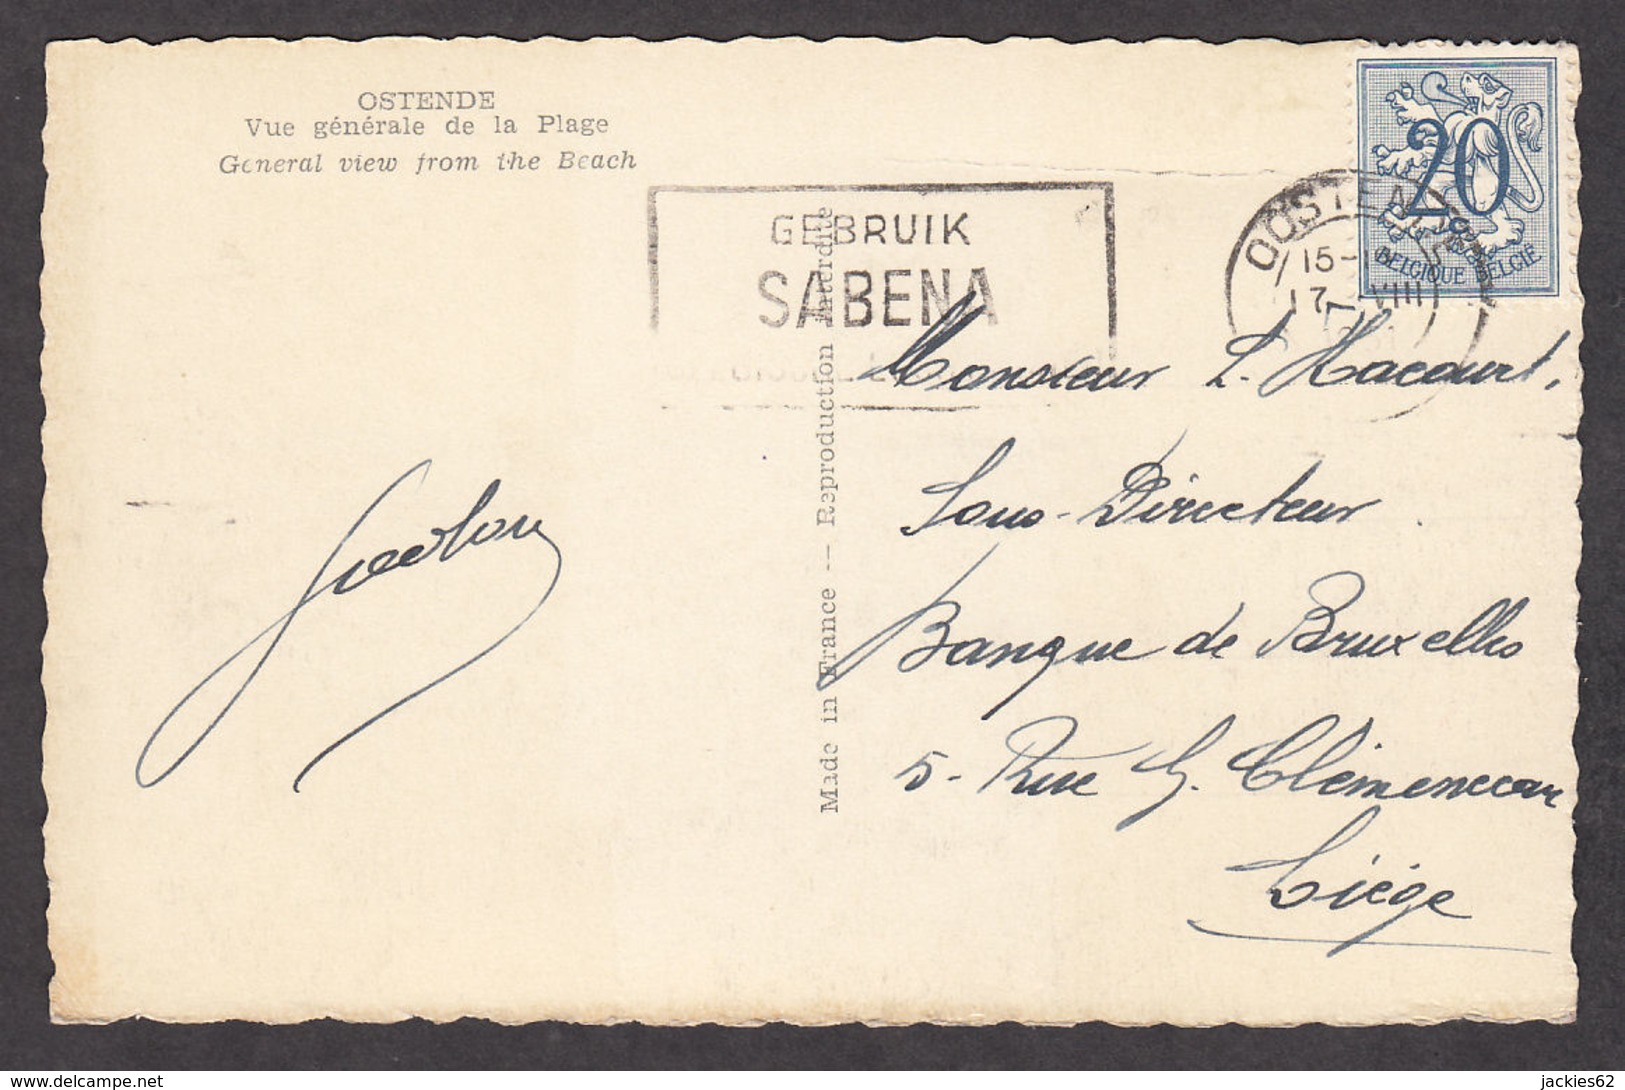 OSTENDE
Vue générale de la Plage
General view from the Beach
GEBRUIK
SABENA
OOSTENDE
15-
17 VIII
20
BELGIQUE BELGIË
Made in France — Reproduction Interdite
Monsieur L. Hacourt,
Sous-Directeur
Banque de Bruxelles
5- Rue G. Clémenceau
Liége
delcampe.net
jackies62